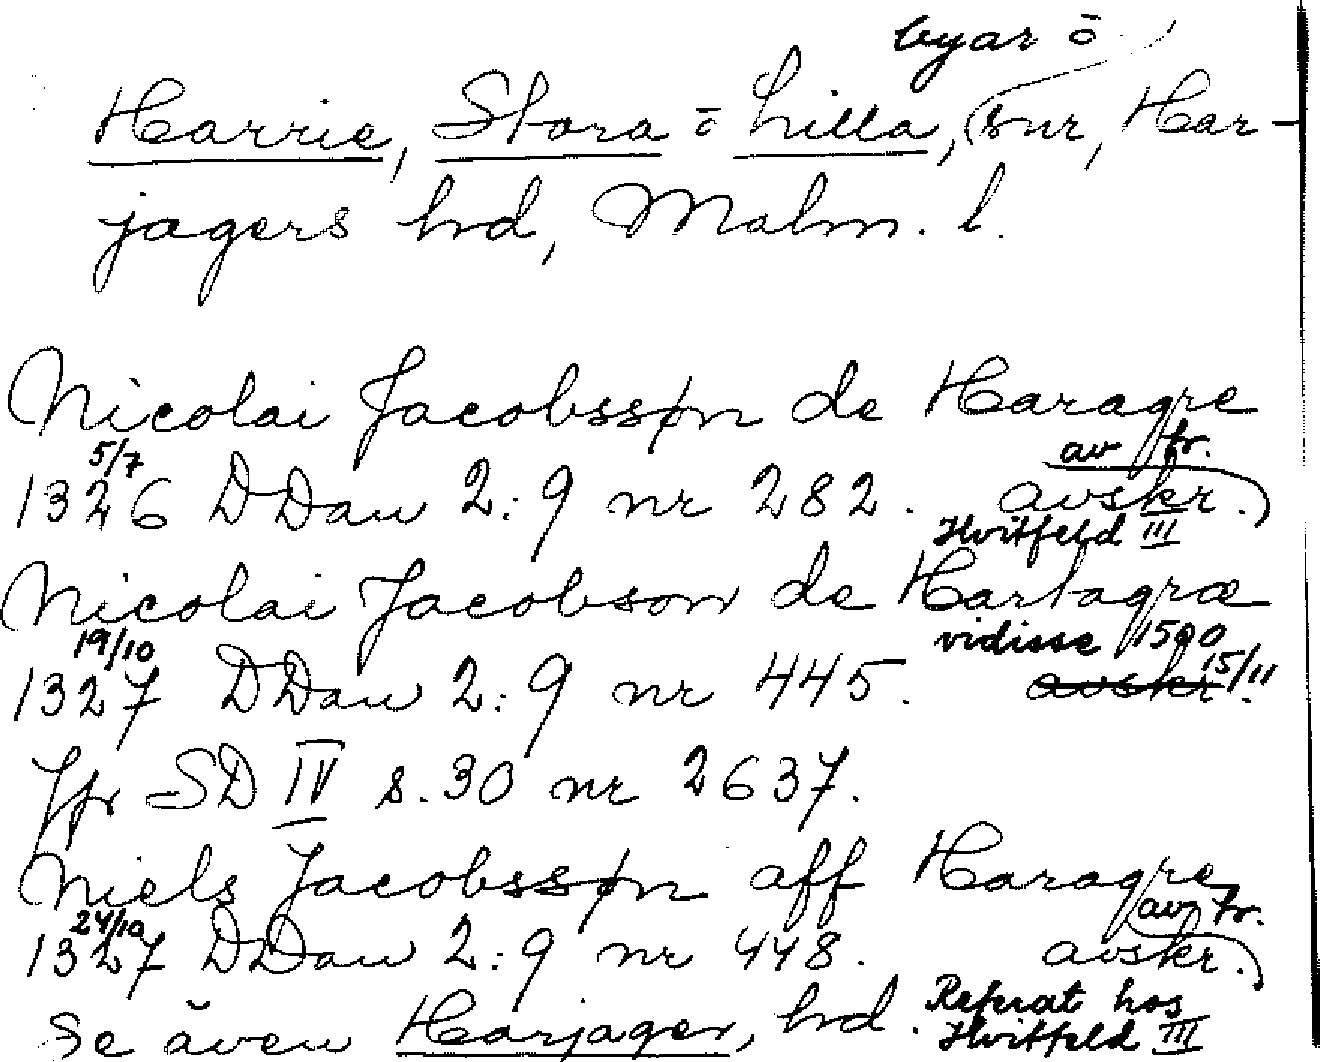 byar o
Harrie, Stora o Lilla, snr, Har-
jagers hd, Malm. l.
Nicolai Jacobssøn de Haragre
av fr.
5/7
1326 DDan 2:9 nr 282. avskr.
Hvitfeld III
Nicolai Jacobson de Hartagræ
vidisse 1500
19/10 15/11
1327 DDan 2:9 nr 445. avskr.
Jfr SD IV s. 30 nr 2637.
Niels Jacobssøn aff Haragre
av fr.
24/10
1327 DDan 2:9 nr 448. avskr.
Referat hos
Se även Harjager, hd.
Hvitfeld III